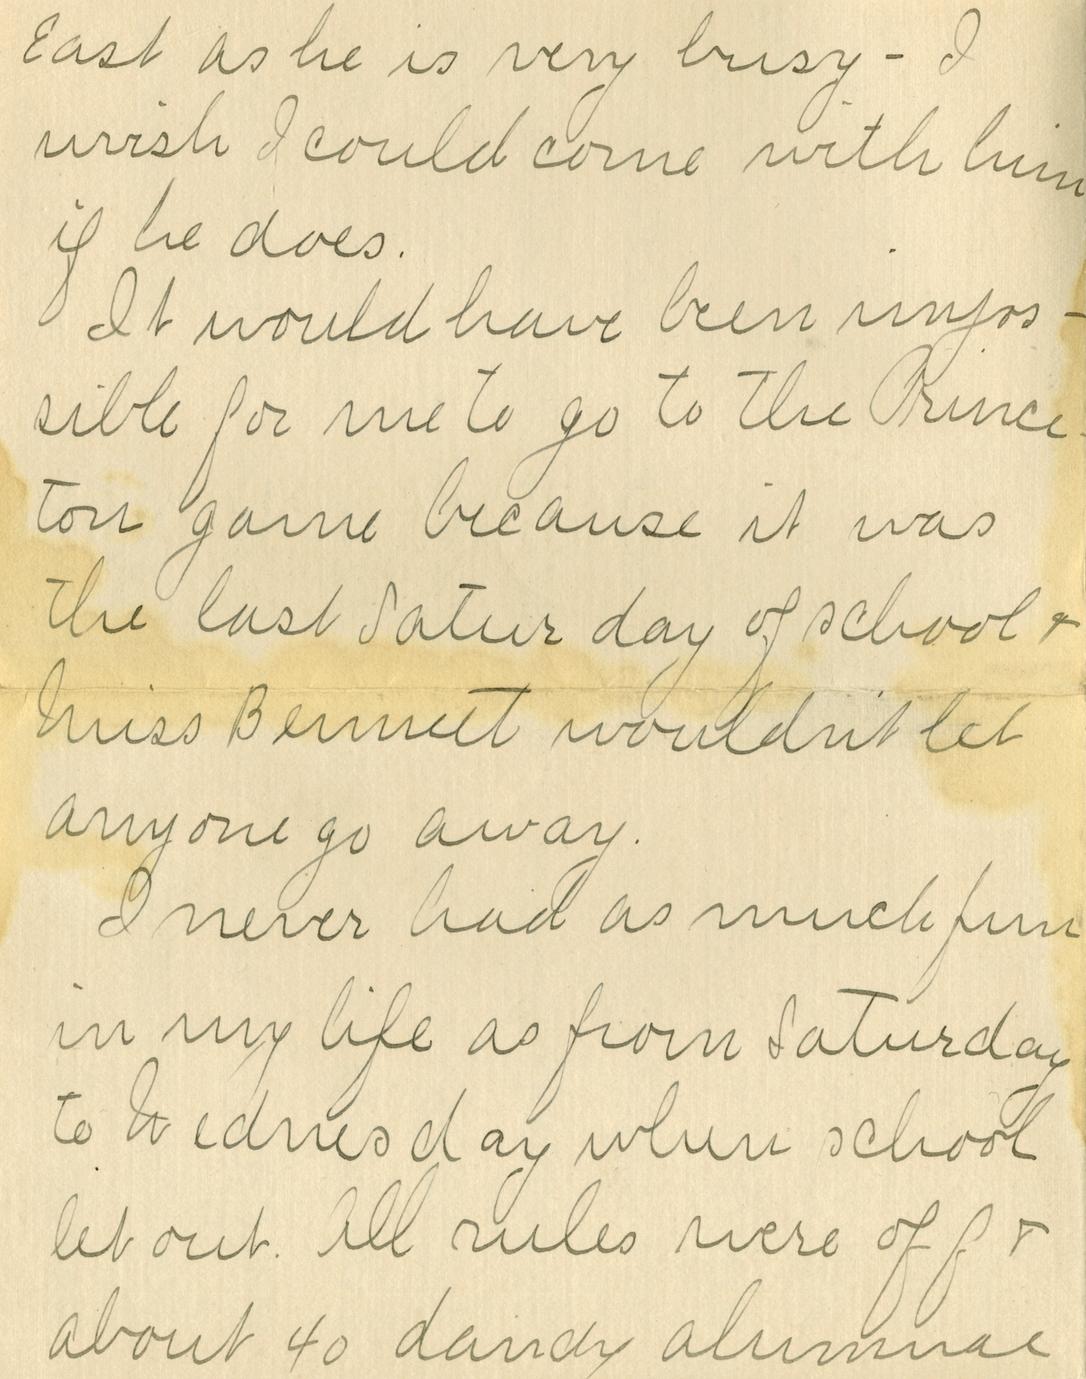 East as he is very busy - I
wish I could come with him
if he does.
It would have been impos-
sible for me to go to the Prince-
ton game because it was
the last Saturday of school &
Miss Bennett wouldn't let
anyone go away.
I never had as much fun
in my life as from Saturday
to Wednesday when school
let out. All rules were off &
about 40 dandy alumnae